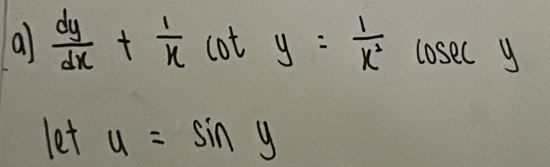 a) dy/dx + 1/x cot y = 1/x² cosec y
let u = sin y